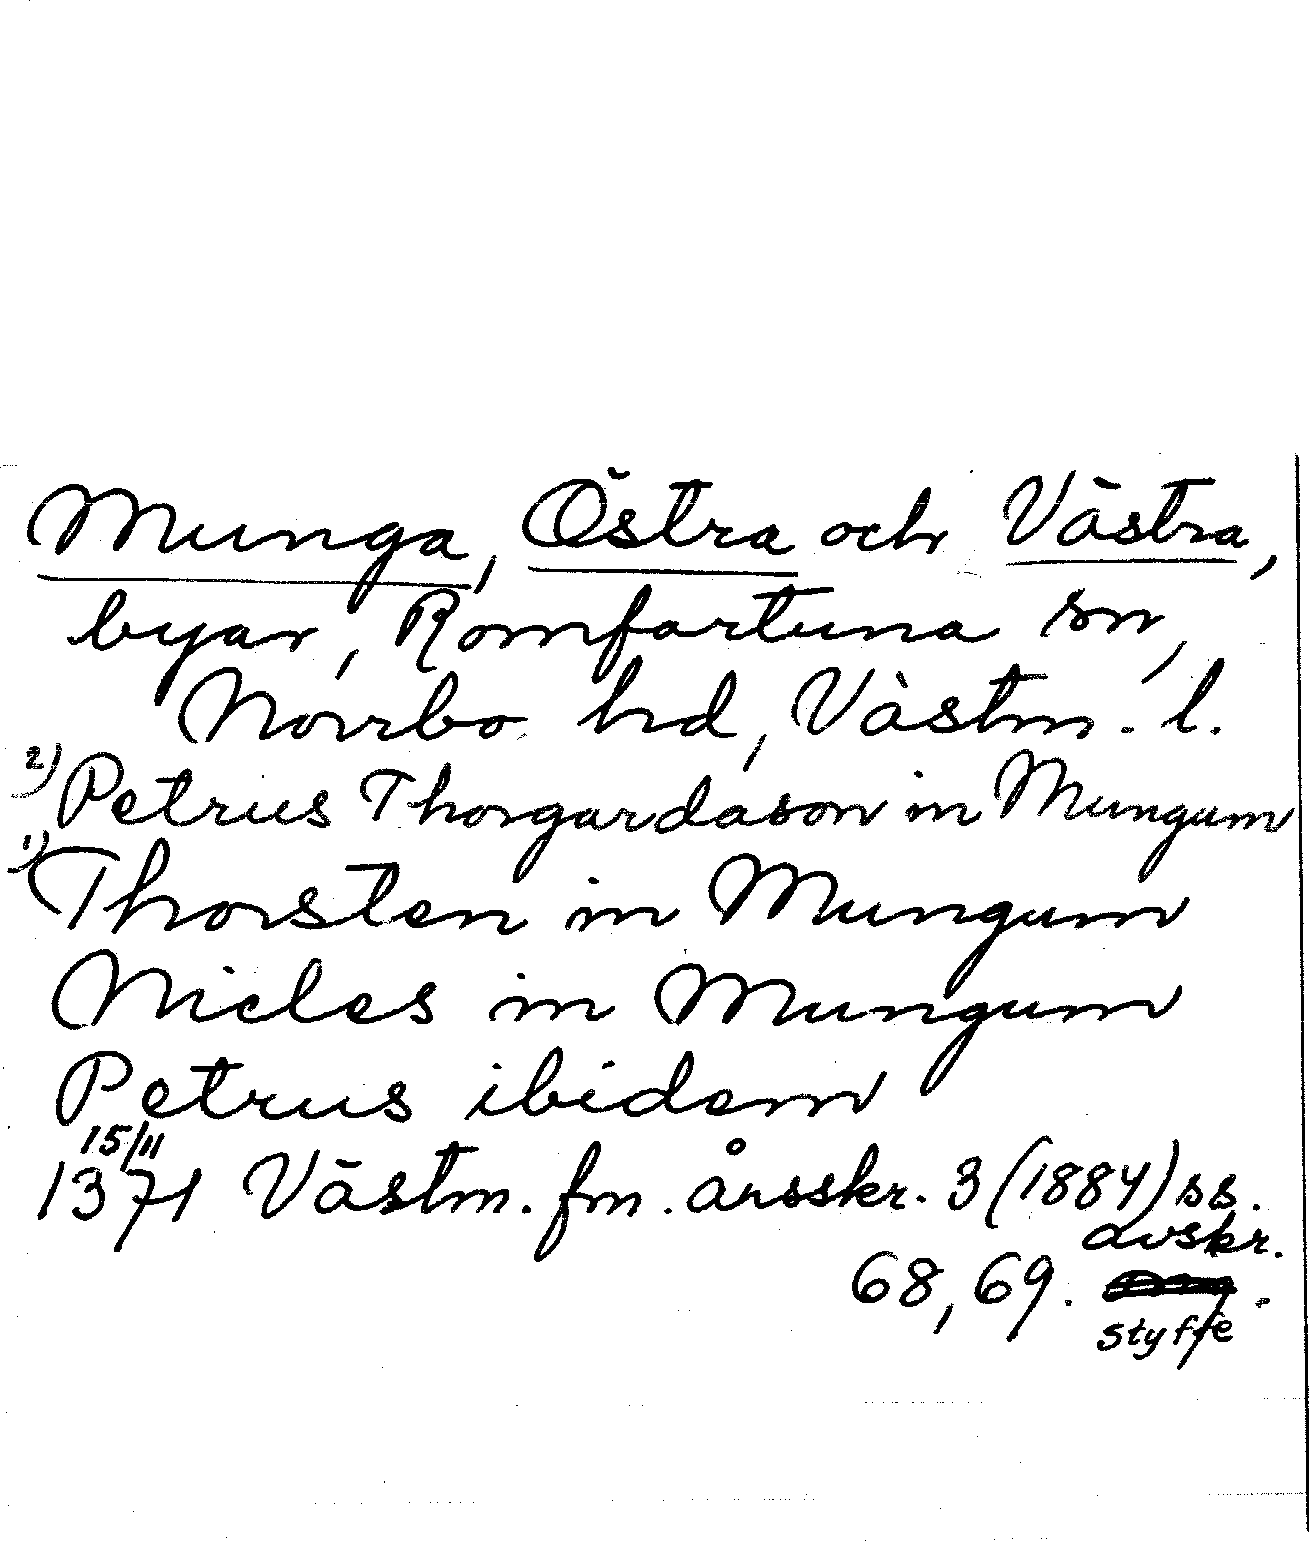 Munga, Östra och Västra,
byar, Romfartuna sn,
Norrbo hd, Västm. l.
2) Petrus Thorgardason in Mungum
1) Thorsten in Mungum
Nicles in Mungum
Petrus ibidem
15/11
1371 Västm. fm. årsskr. 3 (1884) ss.
68, 69. avskr.
Styffe